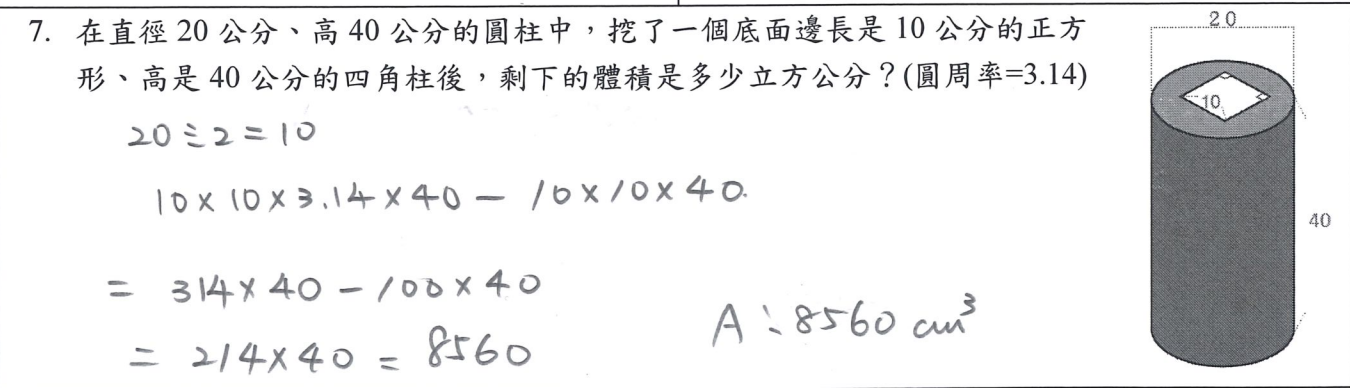 7. 在直徑 20 公分、高 40 公分的圓柱中，挖了一個底面邊長是 10 公分的正方
形、高是 40 公分的四角柱後，剩下的體積是多少立方公分？(圓周率=3.14)
20
10
40
20÷2=10
10×10×3.14×40－10×10×40.
= 314×40－100×40
= 214×40 = 8560
A：8560 cm³